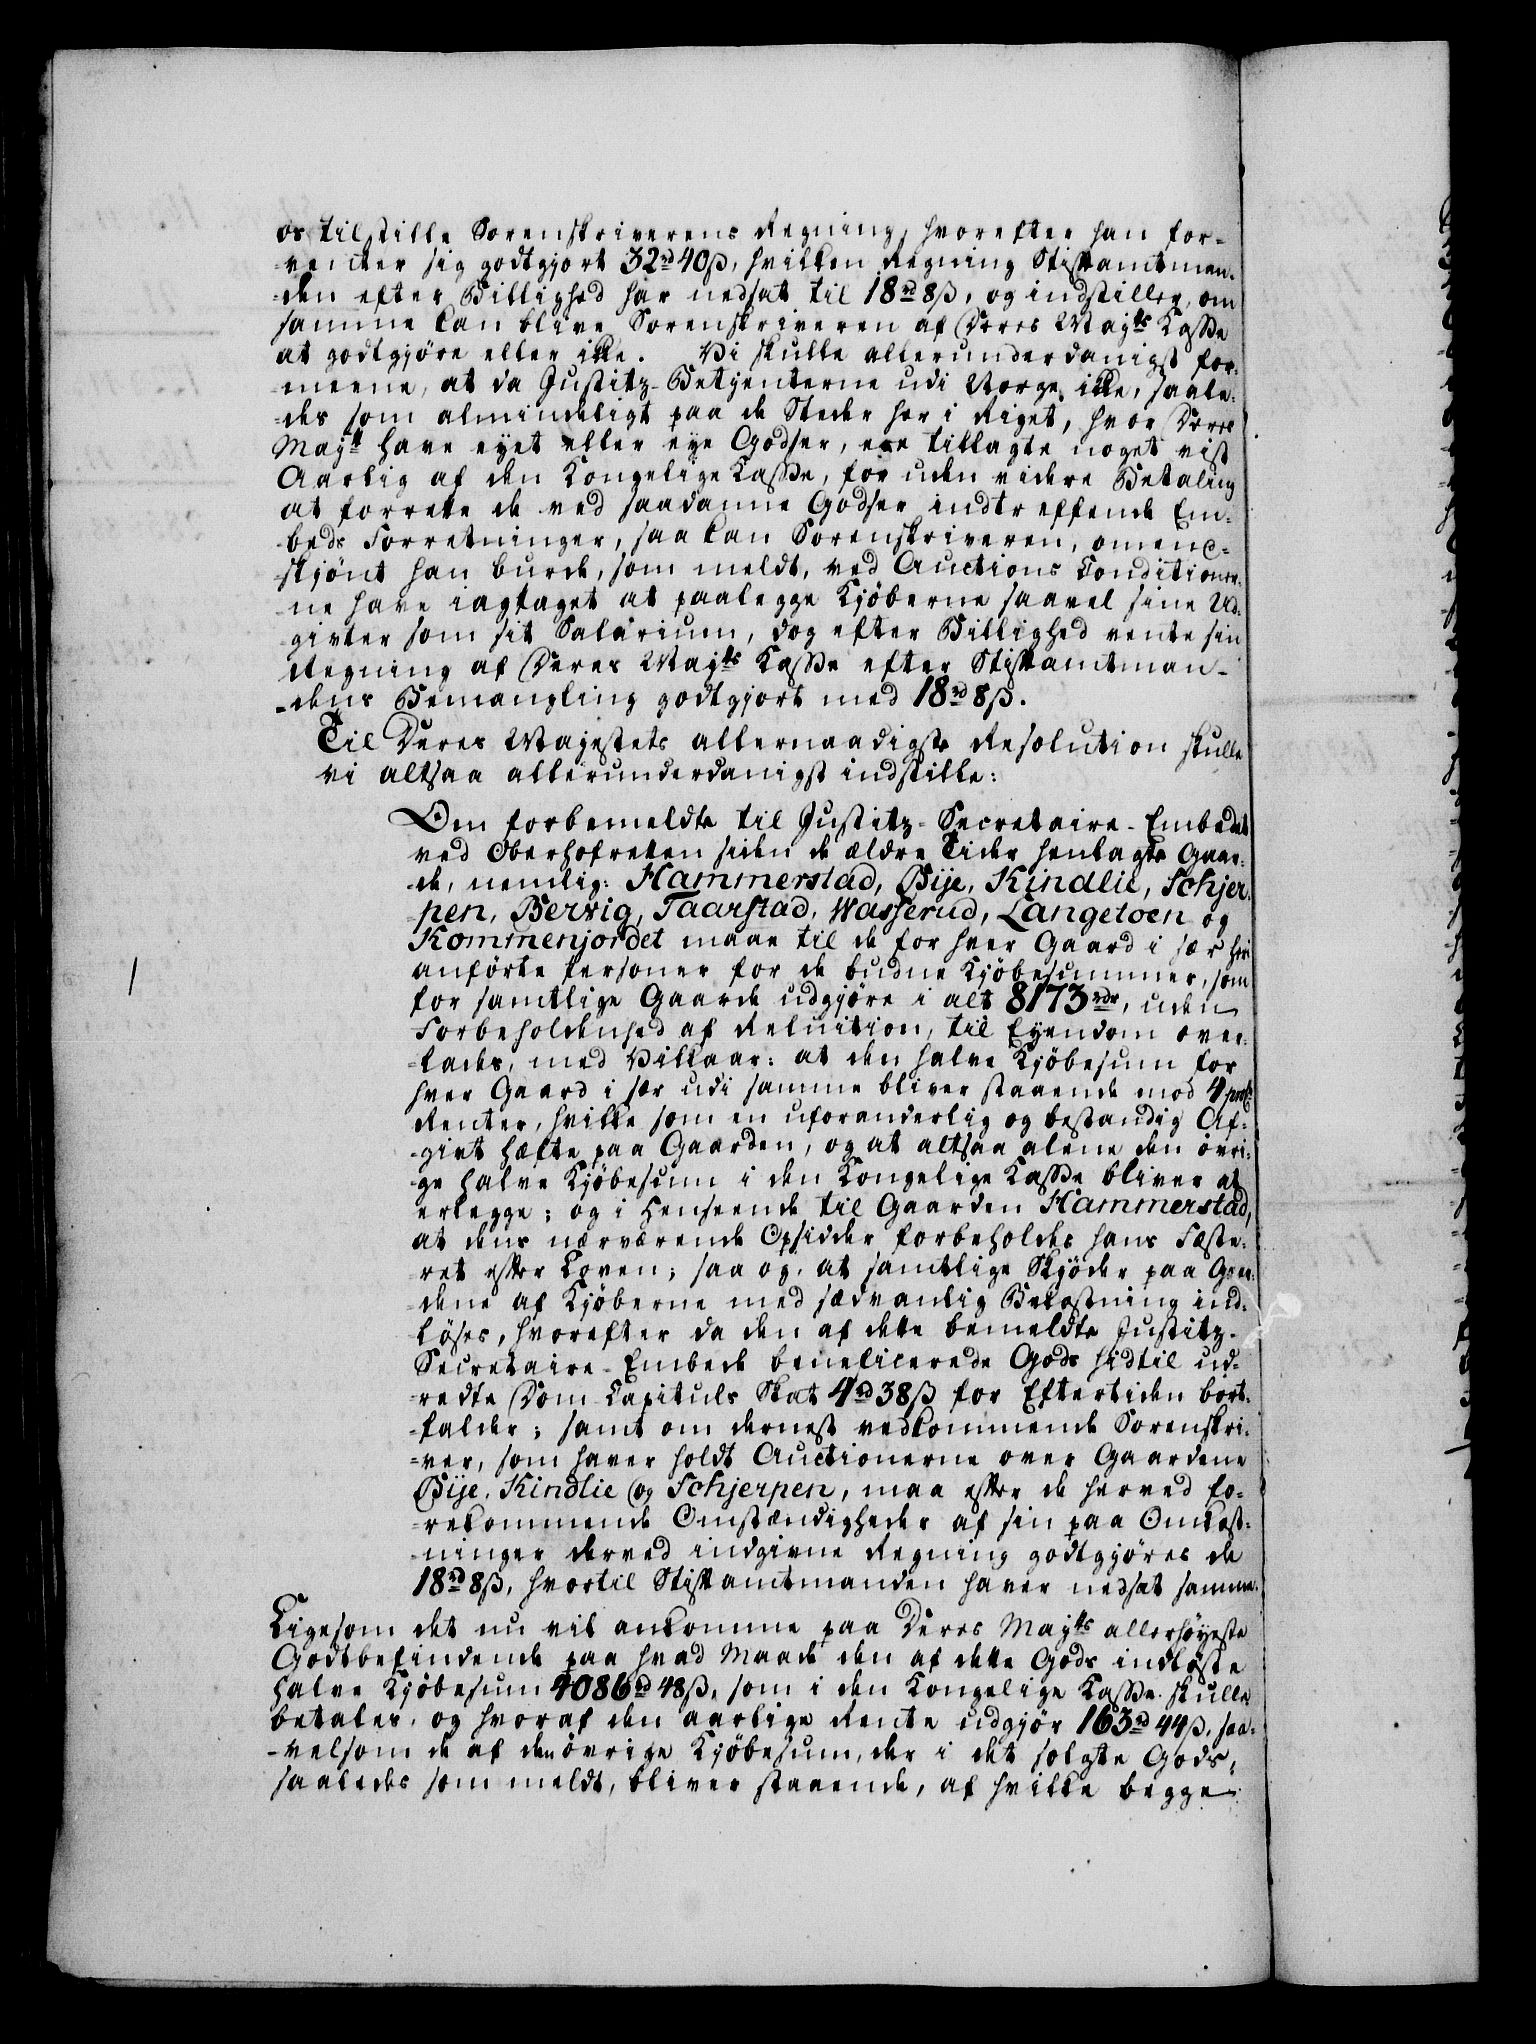 os tilstille Sorenskriverens Regning, hvorefter han for-
-venter sig godtgjort 32rd 40ß, hvilken Regning Stiftamtman-
-den efter Billighed har nedsat til 18rd 8ß, og indstiller, om
samme kan blive Sorenskriveren af Deres Mayts Kasse
at godtgjöre eller ikke. Vi skulle allerunderdanigst for-
meene, at da Justitz-Betjenterne udi Norge ikke, saale-
-des som almindeligt paa de Steder her i Riget, hvor Deres
Mayt have eyet eller eye Godser, ere tillagte noget vist
Aarlig af den Kongelige Kasse, for uden videre Betaling
at forrette de ved saadanne Godser indtreffende Em-
-beds Forretninger, saa kan Sorenskriveren, omend-
-skjönt han burde, som meldt, ved Auctions Conditioner-
-ne have iagtaget at paalegge Kjöberne saavel sine Ud-
givter som sit Salarium, dog efter Billighed vente sin
Regning af Deres Mayts Kasse efter Stiftamtman-
-dens Bemangling godtgjort med 18rd 8ß.
Til Deres Majestets allernaadigste Resolution skulle
vi altsaa allerunderdanigst indstille:
Om forbemeldte til Justitz-Secretaire-Embedet
ved Oberhofretten siden de ældre Tider henlagte Gaar-
-de, nemlig: Hammerstad, Bije, Kindlie, Schjer-
-pen, Bervig, Taarstad, Wasserud, Langetoen og
Kommenjordet maae til de for hver Gaard i sær her
anförte Personer for de budne Kjöbesummer, som
for samtlige Gaarde udgjöre i alt 8173rdr, uden
Forbeholdenhed af Reluition, til Eyendom over-
-lades, med Vilkaar: at den halve Kjöbesum for
hver Gaard i sær udi samme bliver staaende mod 4 proC.
Renter, hvilke som en uforanderlig og bestandig Af-
-givt hæfte paa Gaarden, og at altsaa alene den övri-
-ge halve Kjöbesum i den Kongelige Kasse bliver at
erlegge; og i Henseende til Gaarden Hammerstad,
at dens nærværende Opsidder forbeholdes hans Fæste-
-ret efter Loven; saa og, at samtlige Skjöder paa Gaar-
-dene af Kjöberne med sædvanlig Bekostning ind-
-löses, hvorefter da den af dette bemeldte Justitz-
Secretaire-Embede beneficerede Gods hidtil ud-
-redte Dom Capituls Skat 4rd 38ß for Eftertiden bort-
-falder; samt om dernest vedkommende Sorenskri-
-ver, som haver holdt Auctionerne over Gaardene
Bije, Kindlie og Schjerpen, maa efter de herved fo-
-rekommende Omstændigheder af sin paa Omkost-
-ninger derved indgivne Regning godtgjöres de
18rd 8ß, hvortil Stiftamtmanden haver nedsat samme.
Ligesom det nu vil ankomme paa Deres Mayts allerhöyeste
Godtbefindende paa hvad Maade den af dette Gods indlöste
halve Kjöbesum 4086rd 48ß, som i den Kongelige Kasse skulle
betales, og hvoraf den aarlige Rente udgjör 163rd 44ß, saa-
-velsom de af den övrige Kjöbesum, der i det solgte Gods,
saaledes som meldt, bliver staaende, af hvilke begge